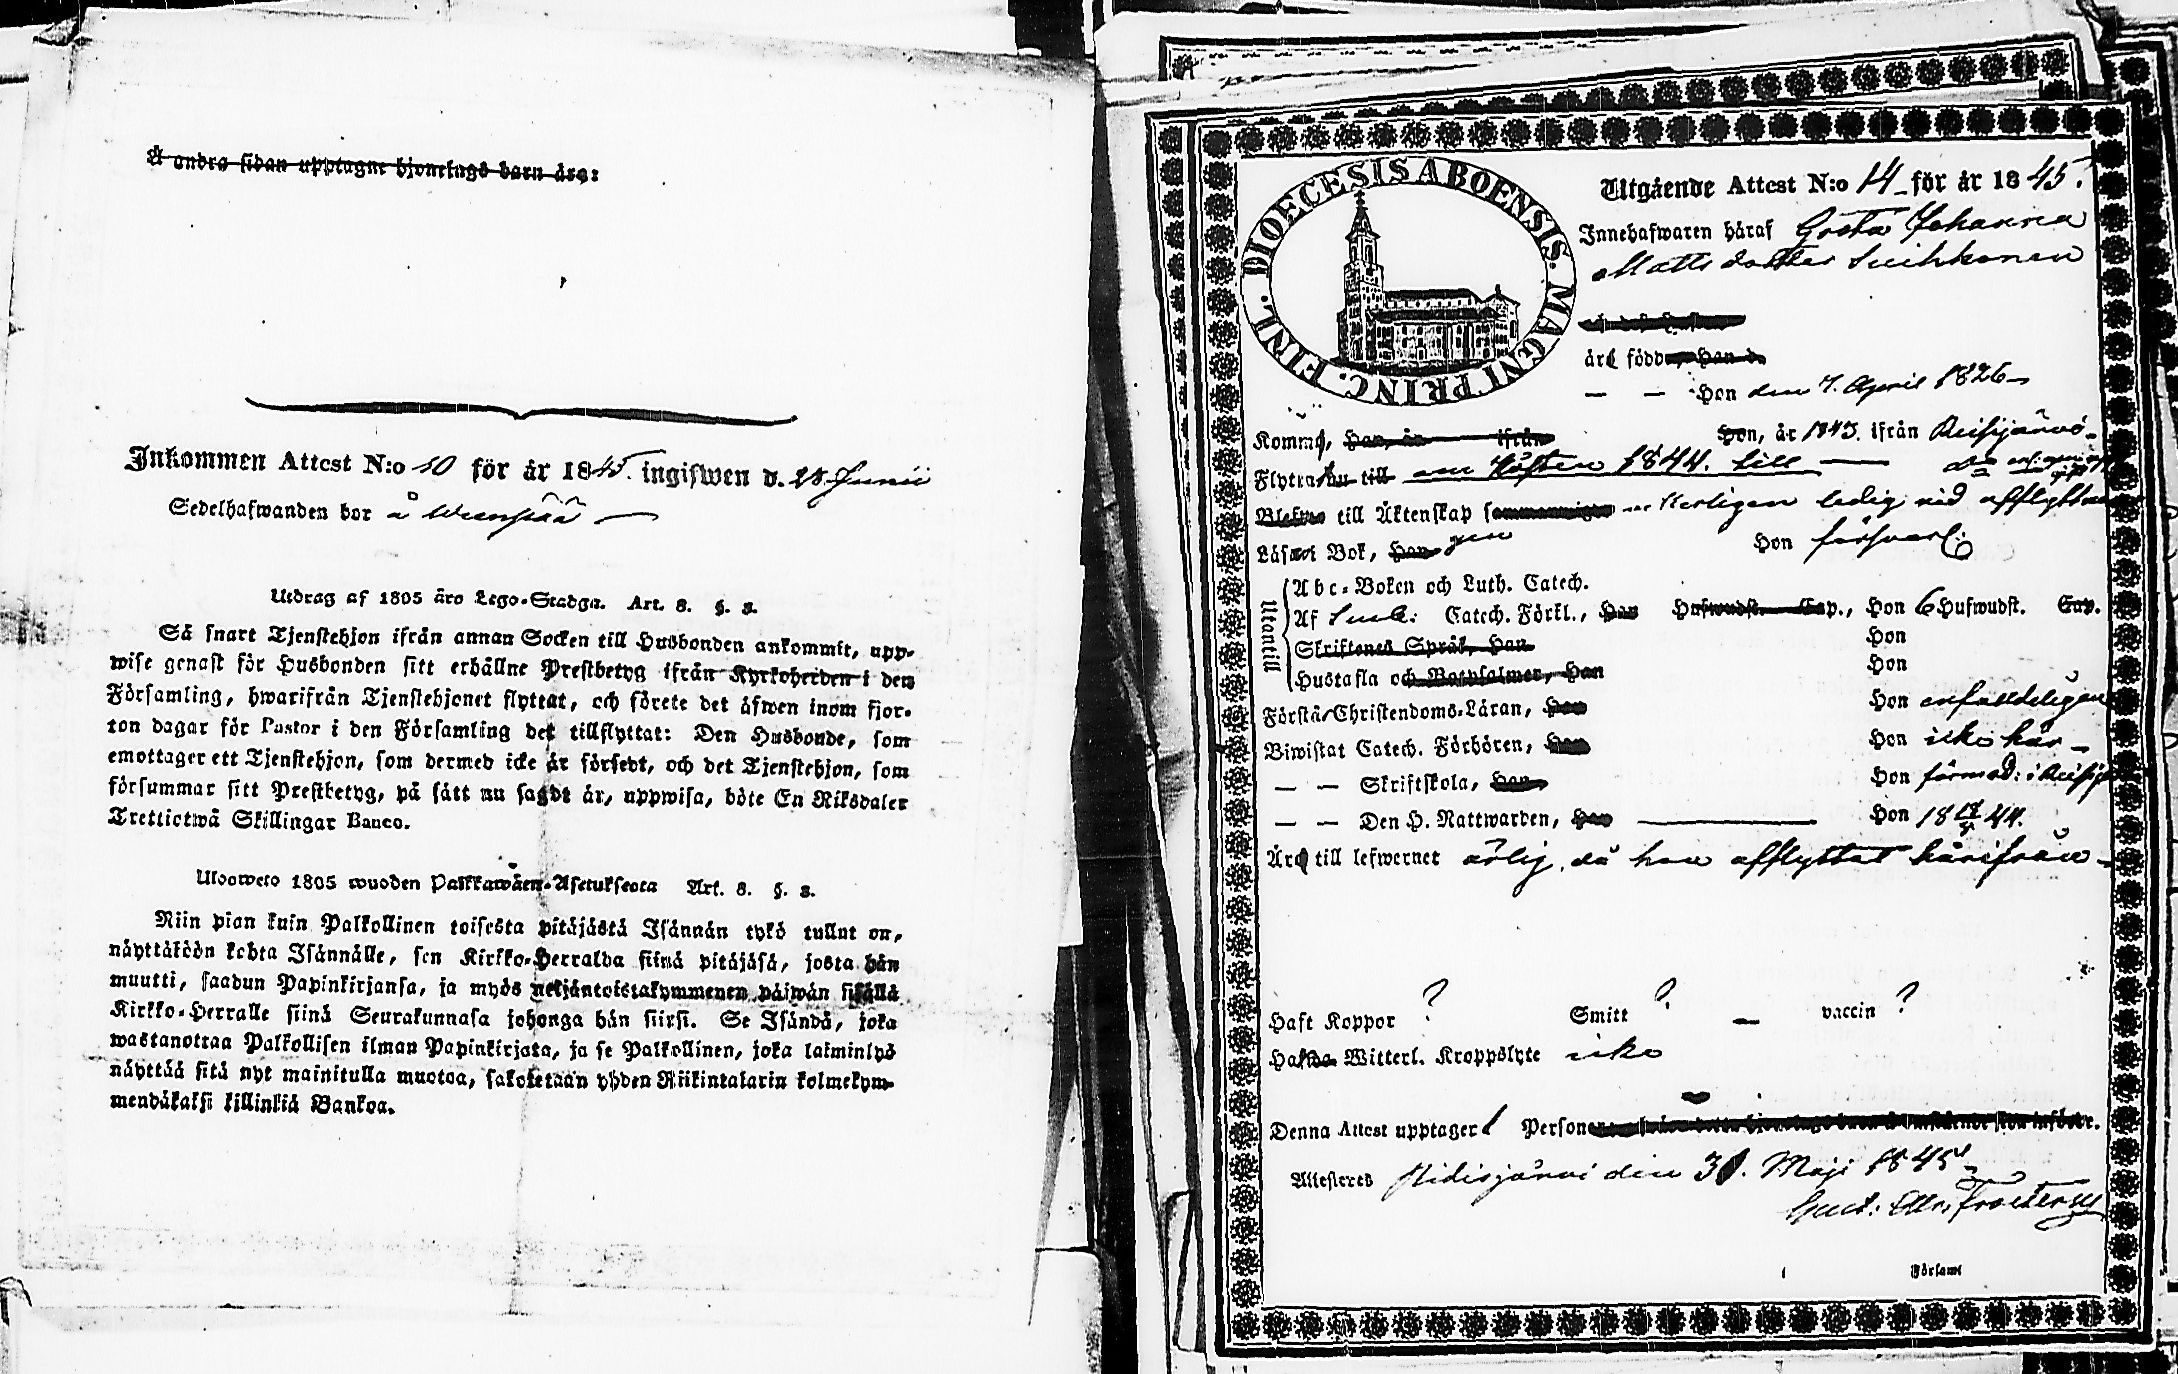 Å andra sidan upptagne hjonelags barn äro:
Inkommen Attest N:o 10 för år 1845. ingifwen d. 28 Junii
Sedelhafwanden bor å
Utdrag af 1805 års Lego-Stadga. Art. 8. §. 3.
Så snart Tjenstehjon ifrån annan Socken till Husbonden ankommit, upp-
wise genast för Husbonden sitt erhållne Prestbetyg ifrån Kyrkoherden i den
Församling, hwarifrån Tjenstehjonet flyttat, och förete det äfwen inom fjor-
ton dagar för Pastor i den Församling det tillflyttat: Den Husbonde, som
emottager ett Tjenstehjon, som dermed icke är försedt, och det Tjenstehjon, som
försummar sitt Prestbetyg, på sått nu sagdt är, uppwisa, böte En Riksdaler
Trettiotwå Skillingar Banco.
Ulosweto 1805 wuoden Palkkawäen-Asetuksesta Art. 8. §. 3.
Niin pian kuin Palkollinen toisesta pitäjästä Isännän tykö tullut on,
näyttäköön kohta Isännälle, sen Kirkko-Herralda siinä pitäjäsä, josta hän
muutti, saadun Papinkirjansa, ja myös neljäntoistakymmenen päiwän sisällä
Kirkko-Herralle siinä Seurakunnasa johonga hän siirsi. Se Isändä, joka
wastanottaa Palkollisen ilman Papinkirjata, ja se Palkollinen, joka laiminlyö
näyttää sitä nyt mainitulla muotoa, sakotetaan yhden Riikintalarin kolmekym-
mendäkaksi killinkiä Bankoa.
DIOECESIS ABOENSIS. MAGNI PRINC. FINL.
Utgående Attest N:o 14 för år 1845.
Innehafwaren häraf Greta Johanna
Matts dotter
äro född, Han d.
— — Hon den 7. April 1826
Komma, Han, år ifrån Hon, år 1843. ifrån Reisjärvi
Flyttar nu till om Hösten 1844. till
till Äktenskap ledig vid afflyttn
Läser i Bok, Han Hon försvarl.
Utantill
Abc-Boken och Luth. Catech.
Af Catech. Förkl., Han Hufwudst. Cap., Hon 6 Hufwudst. Cap.
Skriftenes Språk, Han Hon
Hustafla och Botpsalmer, Han Hon
Förstår Christendoms-Läran, Han Hon enfaldeligen
Biwistat Catech. Förhören, Han Hon icke här
— — Skriftskola, Han Hon i
— — Den H. Nattwarden, Han Hon 18 44.
Äro till lefwernet ärlig, då hon afflyttat härifrån
Haft Koppor ? Smitt ? — vaccin ?
Hafwa Witterl. Kroppslyte icke
Denna Attest upptager 1 Person
Attesteras Pidisjärvi den 31. Maji 1845
Församl